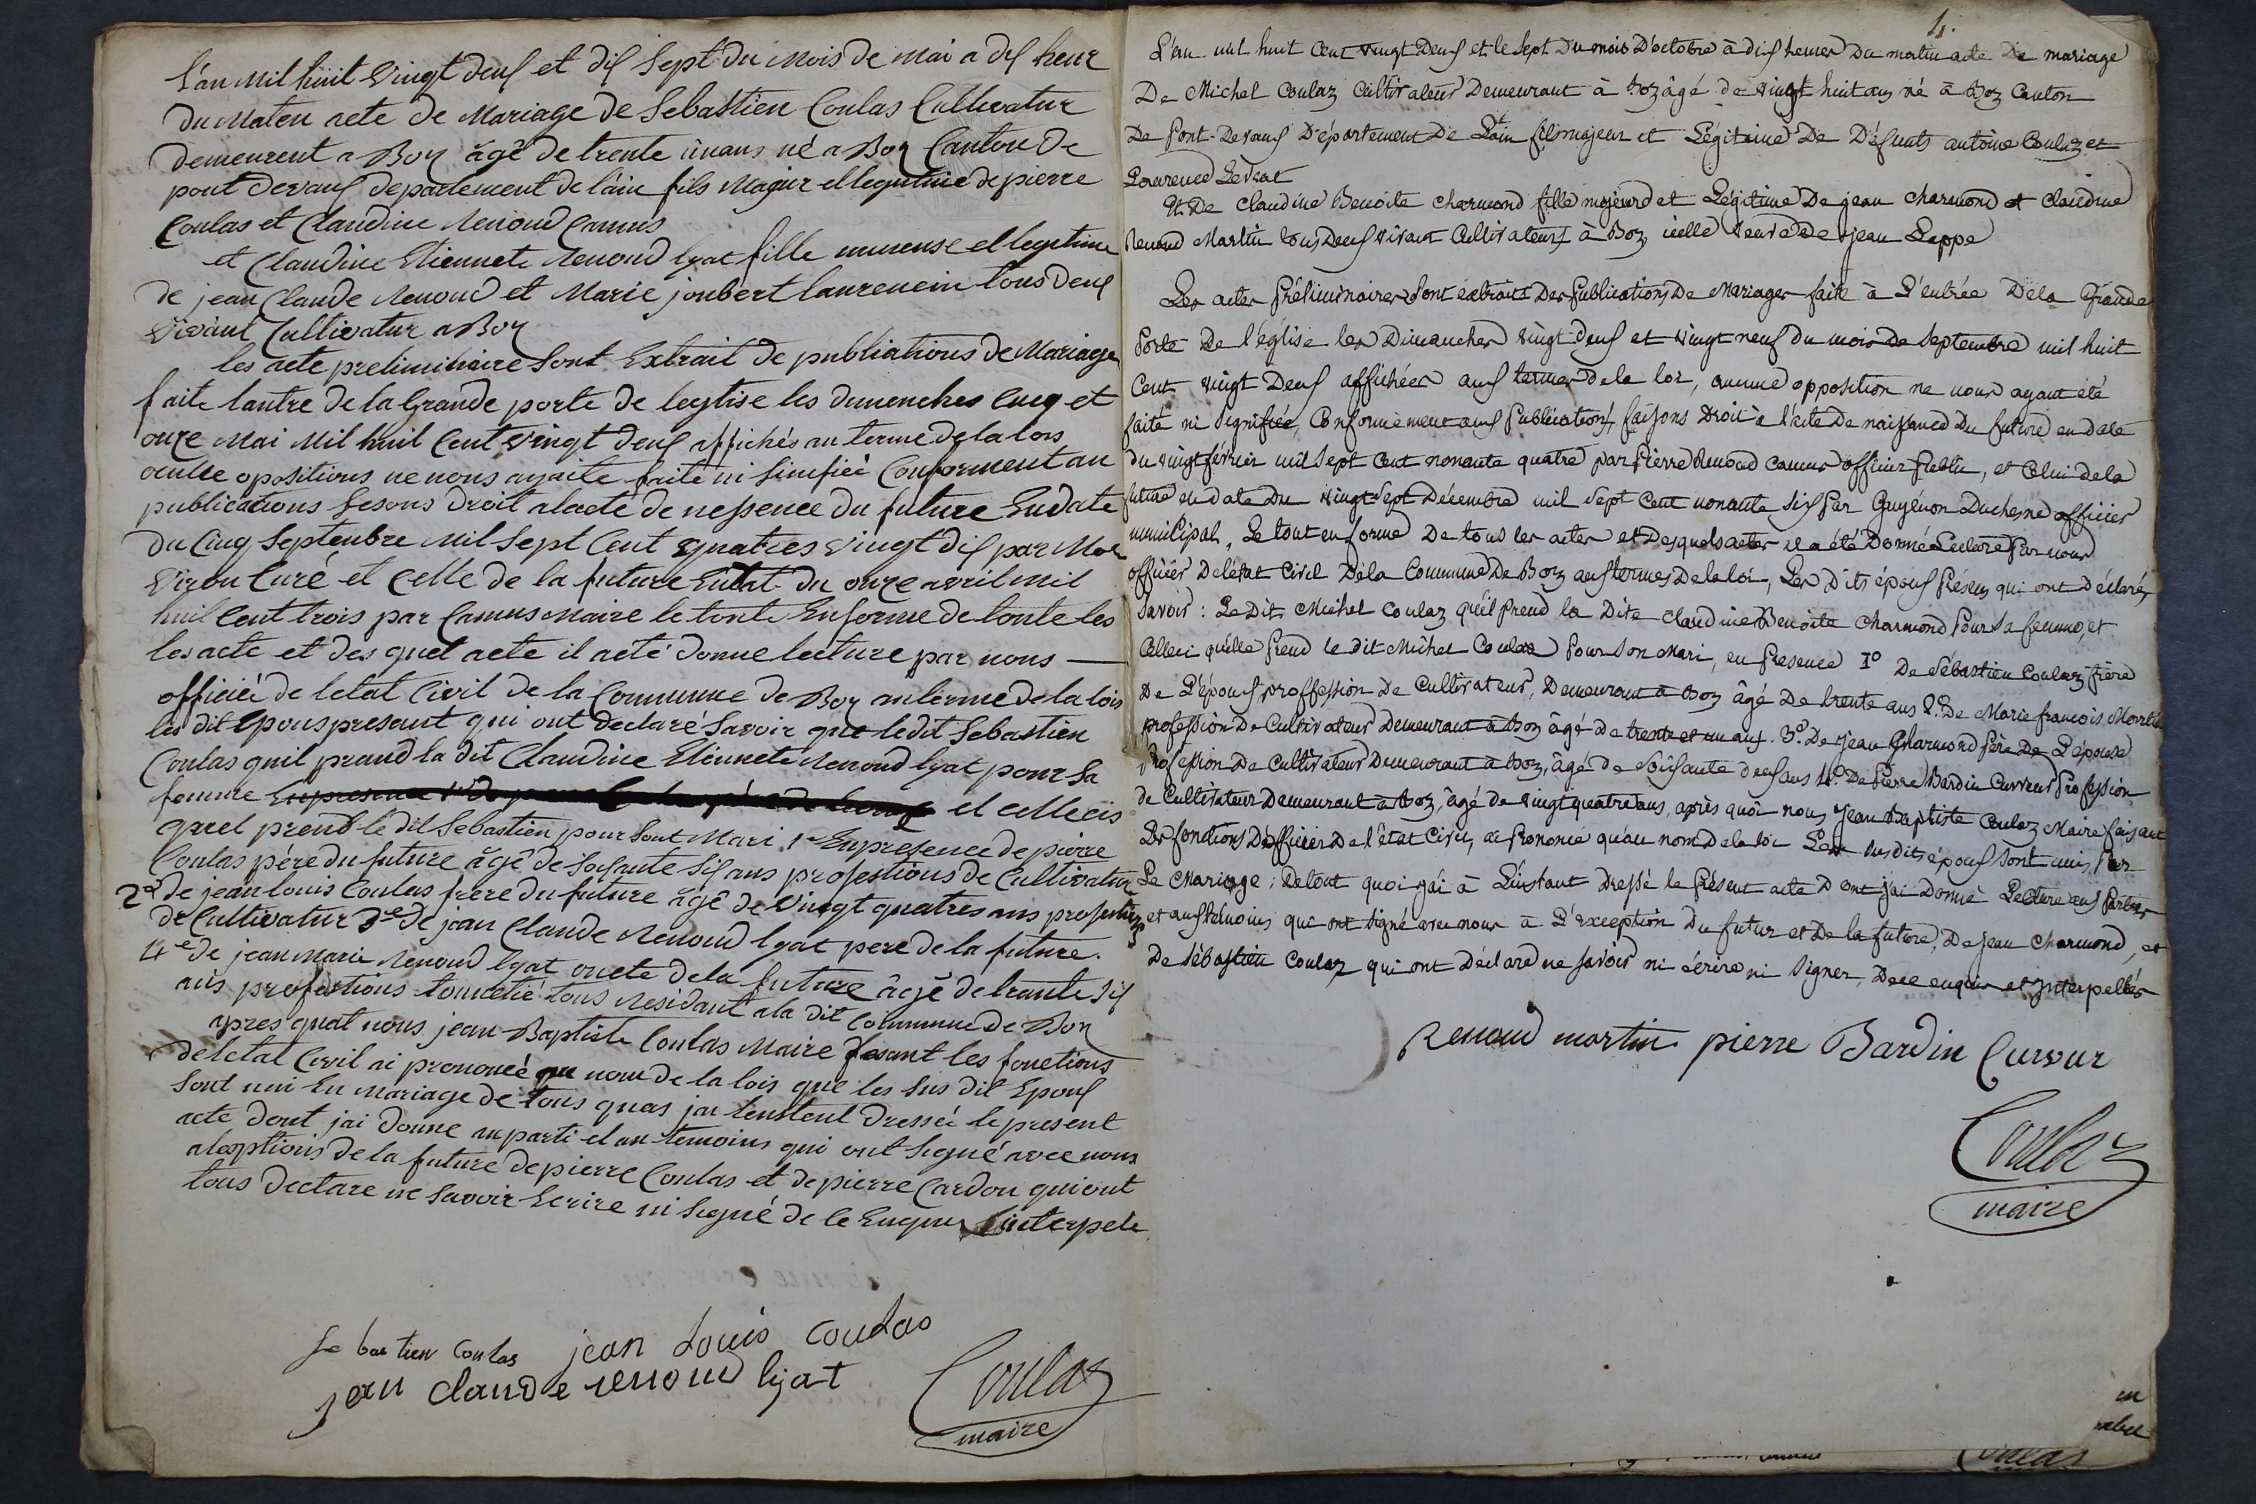 l'an Mil huit vingt deux et dix sept du Mois de Mai a dix heur
du Maten acte de Mariage de Sebastien Coulas Cultivatur
demeurent a Boz âgê de trente un ans né a Boz Canton de
pont devaux departement de l'ain fils Majur et legitime de pierre
Coulas et Claudine Renoud Camus
et Claudine Etiennete Renoud lyat fille mineuse et legitime
de jean Claude Renoud et Marie joubert laurencin tous deux
vivant Cultivatur a Boz
les acte preliminaire sont Extrait de publiations de Mariage
faite lantre de la Grande porte de leglise les dimenches Cinq et
onze Mai Mil huit Cent vingt deux affichés au terme de la lois
aucune opositions ne nous ayaite faite ni sinifiéi Conforment au
publications fesons droit a lacte de nessence du future Endate
du Cinq Septenbre Mil Sept Cent quatres vingt dix par
Curé et Celle de la future Endat du onze avril Mil
huit Cent trois par Camus Maire le toute Enforme de toute les
les acte et des quel acte il a eté donne lecture par nous
officiéi de letat Civil de la Commune de Boz au terme de la lois
les dit Epous presant qui ont declaré Savoir que ledit Sebastien
Coulas quil prand la dit Claudine Etiennete Renoud lyat pour Sa
femme et celle cis
quel prend le dit Sebastien pour Sont Mari 1er Enpresence de pierre
Coulas pére du future âgê de Soisante Six ans profestions de Cultivatur
2e de jean louis Coulas frere du future âgê de Vingt quatres ans profestions
de Cultivatur 3e de jean Claude Renoud lyat pere de la future.
4e de jean Marie Renoud lyat oncle de la future âgê de trante Six
ans profestions tonnelié tous Residant a la dit Commune de Boz
apres quat nous jean Baptiste Coulas Maire fesant les fonctions
deletat Civil ai prononcé au nom de la lois que les sus dit Epoux
Sont uni En Mariage de tous quas jai lenstent dressée le present
acte dont jai donne au parti et au temoins qui ont Signé avec nous
alexptions de la future de pierre Coulas et de pierre Cardon qui ont
tous declare ne Savoir Ecrire ni Signé de le Enquis interpele
Sebastien Coulas jean Louis Coulas
jean claude renoud lyat
Coulas
maire
4.
L'an mil huit Cent vingt Deux et le Sept Du mois D'octobre à dix heures Du matin acte De mariage
De Michel Coulaz Cultivateur Demeurant à Boz âgé de vingt huit ans né à Boz Canton
De Pont-Devaux Département De L'ain fils majeur et Légitime De Défunts antoine Coulaz et
Laurence Levrat
Et De Claudine Benoite Charmond fille majeure et Légitime De jean Charmond et Claudine
Renoud Martin tous Deux vivant Cultivateurs à Boz, icelle veuve de jean Leppe
Les actes Préliminaires sont extraits Des Publications De Mariages faite à L'entrée Dela Grande
Porte De l'église les Dimanches vingt-deux et vingt neuf du mois de Septembre mil huit
Cent vingt Deux affichées aux termes dela loi, aucune opposition ne nous ayant été
faite ni Signifiée, Conformément aux Publications, faisons Droit à l'acte De naissance Du futur en date
du vingt février mil sept Cent nonante quatre par Pierre Renoud Camus officier Public, et Celui dela
future en date du vingt-Sept Décembre mil Sept Cent nonante Six Par Guyénon Duchesne officier
municipal, Le tout en forme De tous les actes et Desquels actes il a été Donné Lecture Par nous
officier Delétat Civil Dela Commune De Boz aux termes Dela loi, Les Dits époux Présens qui ont Déclarés
Savoir : Le Dit Michel Coulaz qu'il Prend la Dite Claudine Benoite Charmond Pour Sa femme, et
Celleci qu'elle Prend le dit Michel Coulaz Pour Son Mari, en Presence 1° De Sébastien Coulaz frère
De L'époux proffession De Cultivateur, Demeurant à Boz âgé De trente ans 2.° De Marie francois
profession De Cultivateur Demeurant à Boz âgé de trente et un ans. 3.° De jean Charmond Père De L'épouse
Profession De Cultivateur Demeurant à Boz, âgé de Soixante deux ans 4.° De Pierre Bardin Curveur Profession
de Cultivateur Demeurant à Boz, âgé de vingt quatre ans, après quoi nous jean Baptiste Coulaz Maire faisant
Les fonctions D'officier De l'état Civil, ai Prononcé qu'au nom dela loi Les Susdits époux Sont unis Par
Le Mariage ; De tout quoi j'ai à L'instant Dressé le Présent acte Dont j'ai Donné Lecture aux Parties
et aux témoins qui ont Signé avec nous à L'exception Du futur et De la future, De jean Charmond, et
De Sébastien Coulaz qui ont Déclaré ne savoir ni écrire ni Signer, De ce enquis et Interpellés
Renoud martin pierre Bardin Curvur
Coulaz
maire
Coulas